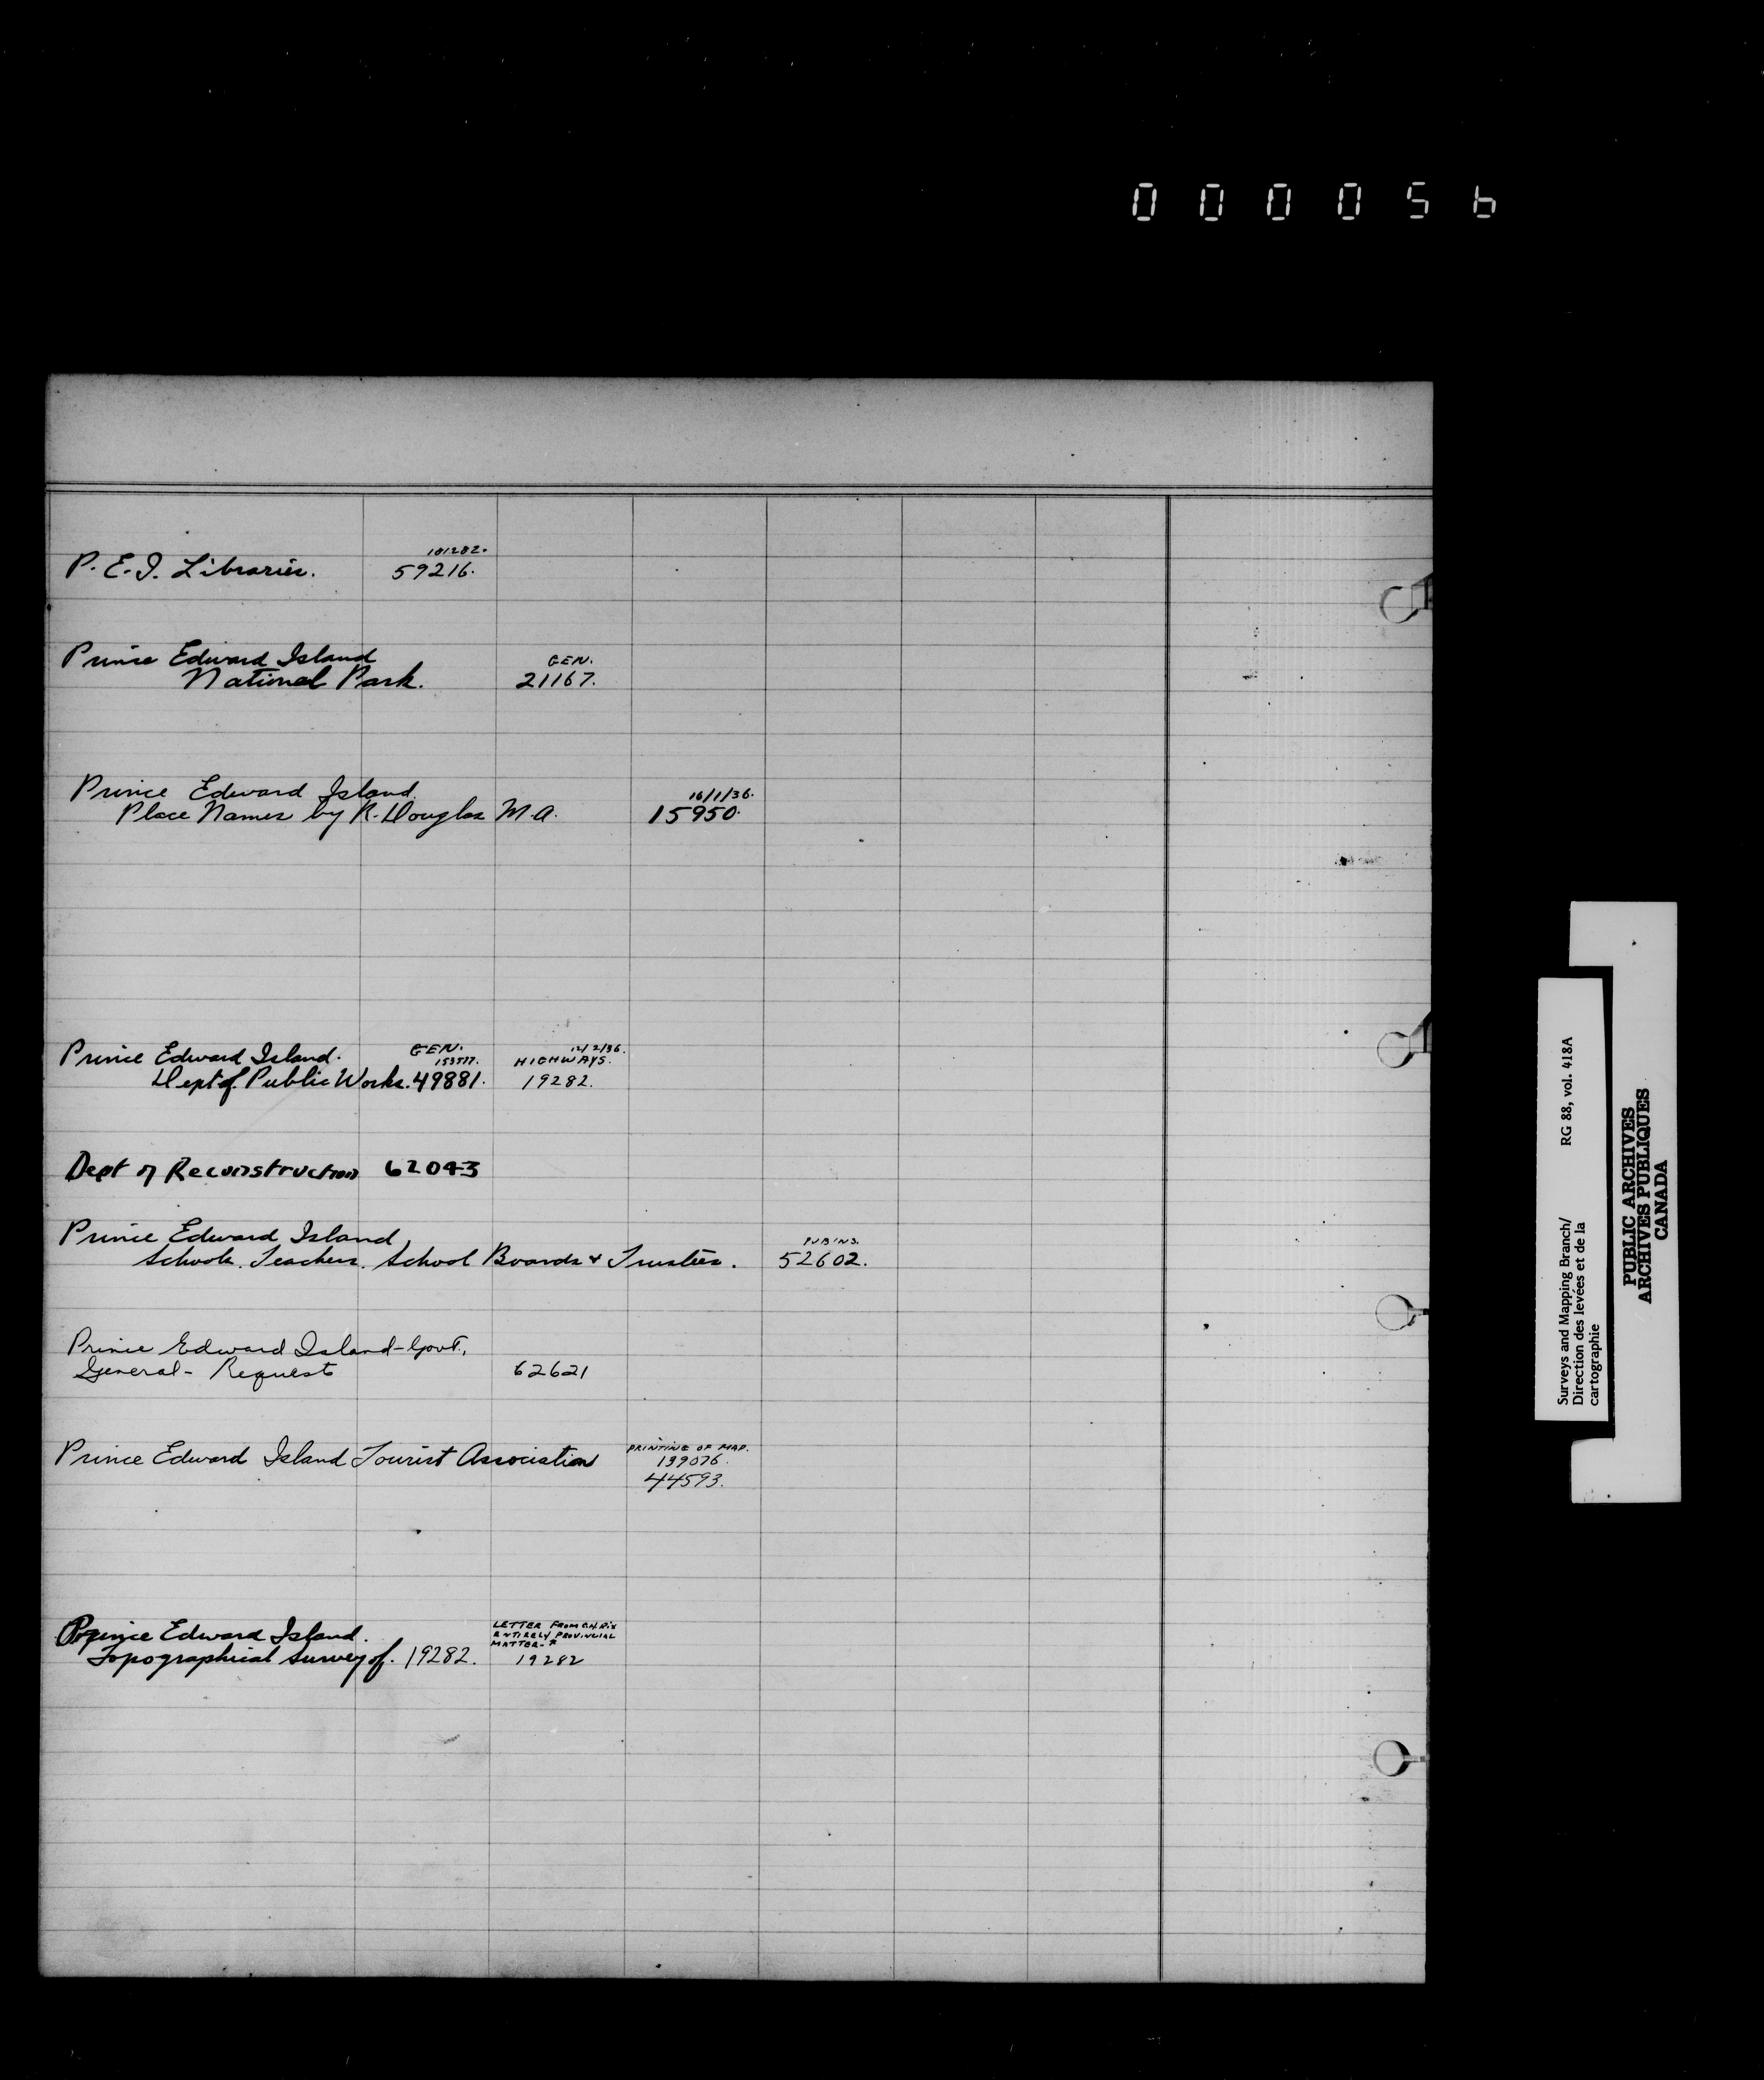 0 0 0 0 5 6
101282.
P. E. I. Libraries. 59216.
Prince Edward Island GEN.
National Park. 21167.
Prince Edward Island. 16/1/36.
Place Names by R. Douglas M.A. 15950.
Prince Edward Island. GEN. 12/2/36.
153577. HIGHWAYS.
Dept of Public Works. 49881. 19282.
Dept of Reconstruction 62043
Prince Edward Island
Schools. Teachers. School Boards & Trustees. 52602.
Prince Edward Island - Govt.
General - Requests 62621
Prince Edward Island Tourist Association PRINTING OF MAP.
139076.
44593.
LETTER FROM
ENTIRELY PROVINCIAL
Prince Edward Island. MATTER-
Topographical Survey of. 19282. 19282
Surveys and Mapping Branch/ RG 88, vol. 418A
Direction des levées et de la
cartographie
PUBLIC ARCHIVES
ARCHIVES PUBLIQUES
CANADA